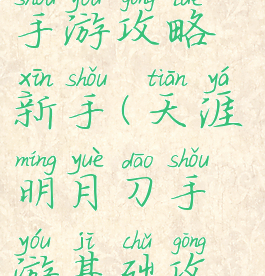 shǒu yóu gōng lüè
手游攻略
xīn shǒu tiān yá
新手(天涯
míng yuè dāo shǒu
明月刀手
yóu jī chǔ gōng
游基础攻